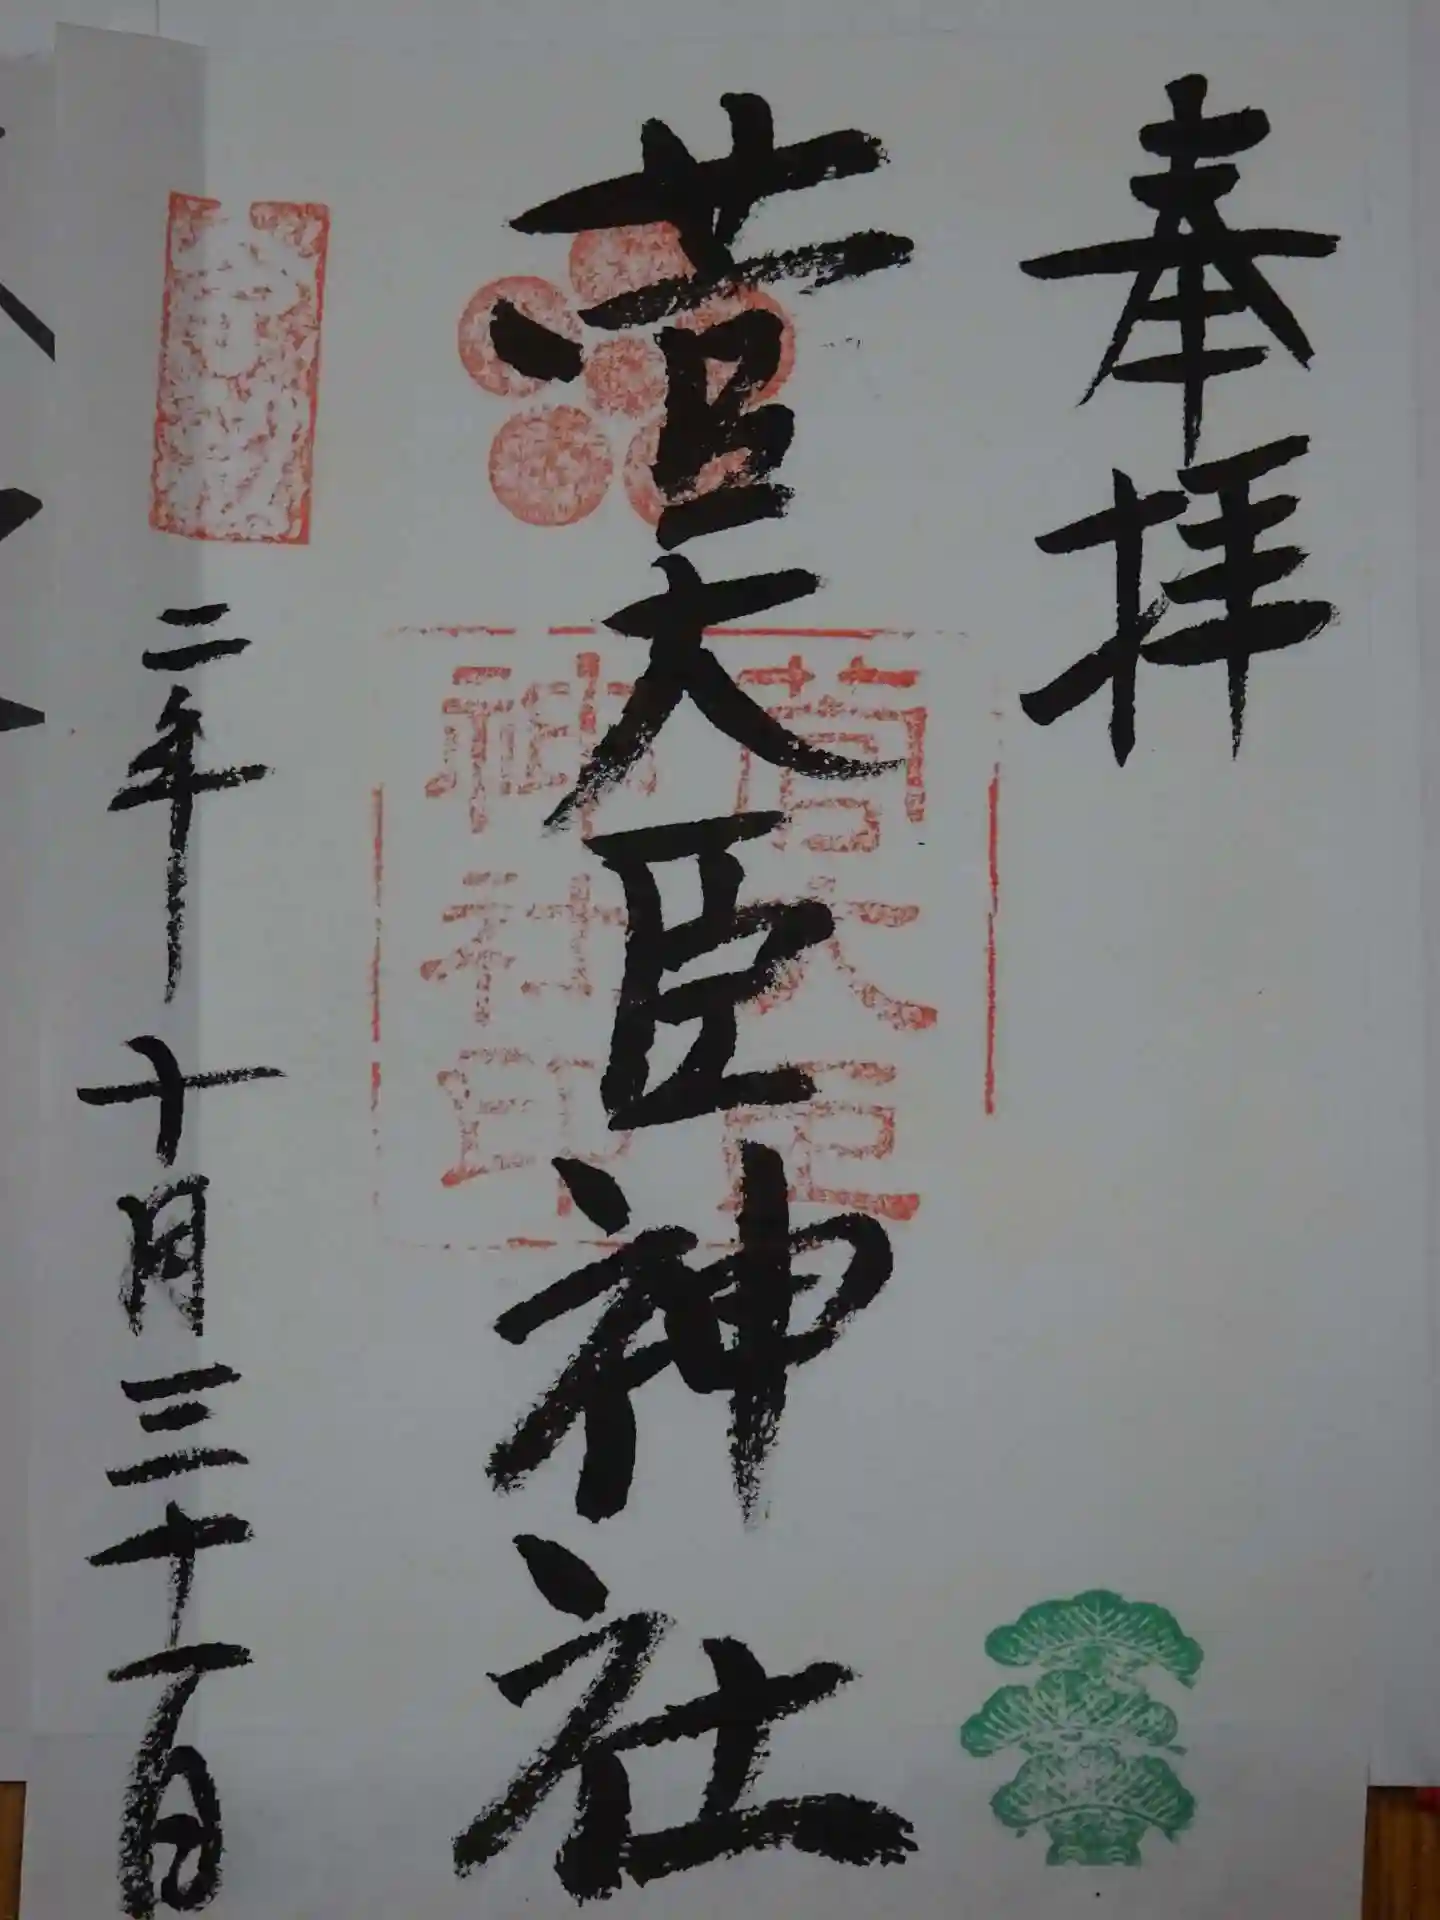 奉拝
菅大臣神社
菅大臣
神社印
二年十月三十一日